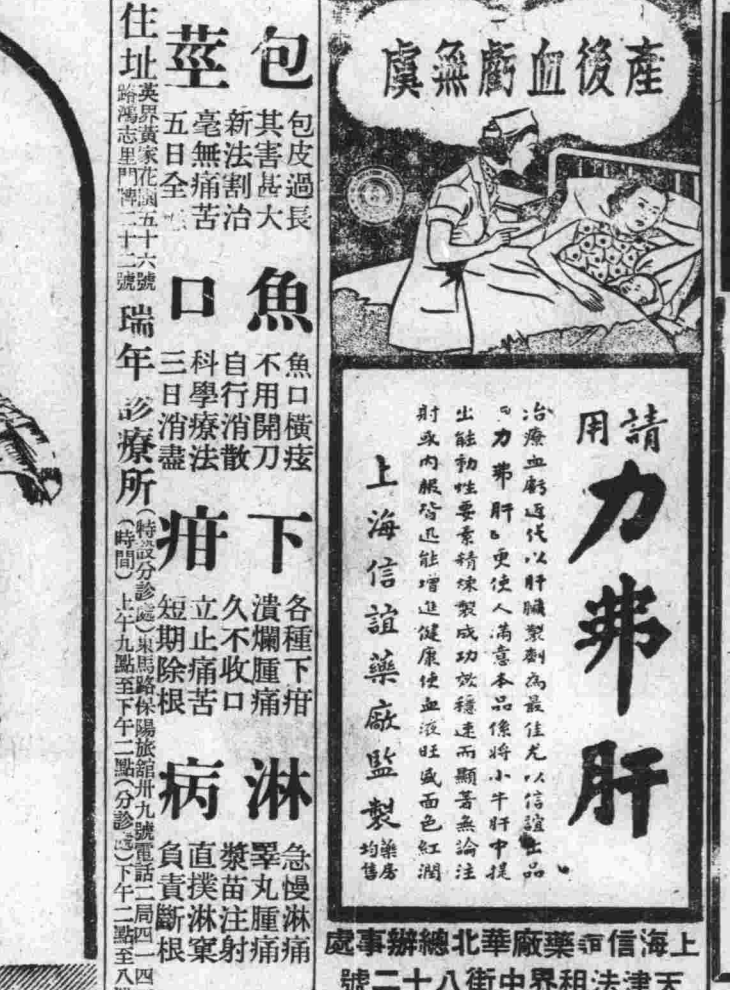 產後血虧無虞
請用
力弗肝
治療血虧近代以肝臟製劑為最佳尤以信誼出品
『力弗肝』更使人滿意本品係將小牛肝中提
出能動性要素精煉製成功效穩速而顯著無論注
射或內服皆迅能增進健康使血液旺盛面色紅潤
上海信誼藥廠監製
藥房
均售
上海信誼藥廠華北總辦事處
天津法租界中街八十二號
包莖
包皮過長
其害甚大
新法割治
毫無痛苦
五日全
魚口
魚口橫痃
不用開刀
自行消散
科學療法
三日消盡
下疳
各種下疳
潰爛腫痛
久不收口
立止痛苦
短期除根
淋病
急慢淋病
睪丸腫痛
漿苗注射
直撲淋窠
負責斷根
住址
英界黃家花園五十六號
路鴻志里門牌二十二號
瑞年診療所
(特設分診處)馬路保陽旅館卅九號電話二局四一四
(時間)上午九點至下午二點(分診處)下午二點至八